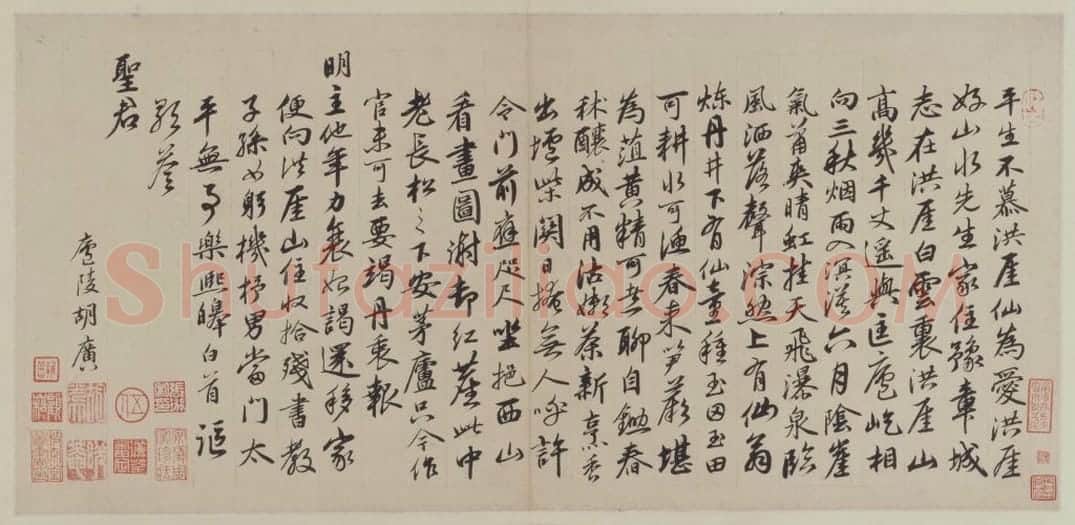 平生不慕洪崖仙為愛洪崖
好山水先生家住豫章城
志在洪崖白雲裏洪崖山
高幾千丈遙與匡廬屹相
向三秋烟雨入溟漾六月陰崖
氣蕭爽晴虹挂天飛瀑泉臨
風洒落聲淙然上有仙翁
煉丹井下有仙童種玉田玉田
可耕水可漁春來笋蕨堪
為菹黄精可聊自鋤春
秫釀成不用沽嫩茶新烹香
出壚柴関日掩無人呼許
令門前雖咫尺坐挹西山
看畫圖謝却紅塵此中
老長松之下安茅廬只今作
官未可去要竭丹衷報
明主他年力衰始謁還移家
便向洪崖山住收拾殘書教
子孫女躬機杼男當門太
平無事樂熙皞白首謳
歌答
聖君
廬陵胡廣
Shufaziliao.com